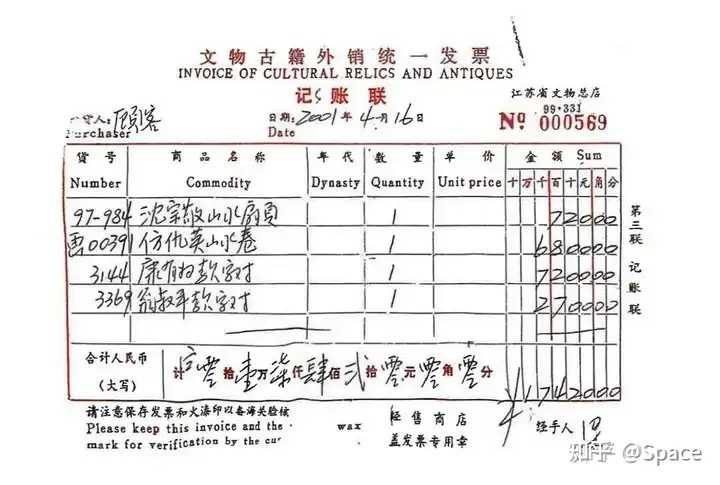 文物古籍外销统一发票
INVOICE OF CULTURAL RELICS AND ANTIQUES
记 账 联
江苏省文物总店
99·331
购货人：顾客 日期：2001年4月16日
Purchaser Date Nº 000569
货号 商品名称 年代 数量 单价 金额 Sum
Number Commodity Dynasty Quantity Unit price 十万千百十元角分
97-984 沈宗敬山水扇页 1 72000
画00391 仿仇英山水卷 1 680000
3144 康有为款字对 1 720000
3369 翁叔平款字对 1 270000
第三联 记账联
合计人民币
(大写) 计 零拾壹万柒仟肆佰贰拾零元零角零分 ¥1742000
请注意保存发票和火漆印以备海关检核
Please keep this invoice and the wax
mark for verification by the cu
经售商店
盖发票专用章
经手人
知乎 @Space